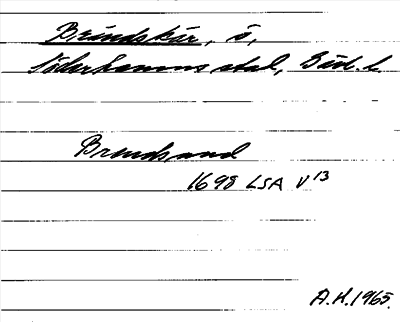 Brändskär, ö,
Söderhamns stad, Gäd. l.
Brendsund
1698 LSA V 13
A.H. 1965.